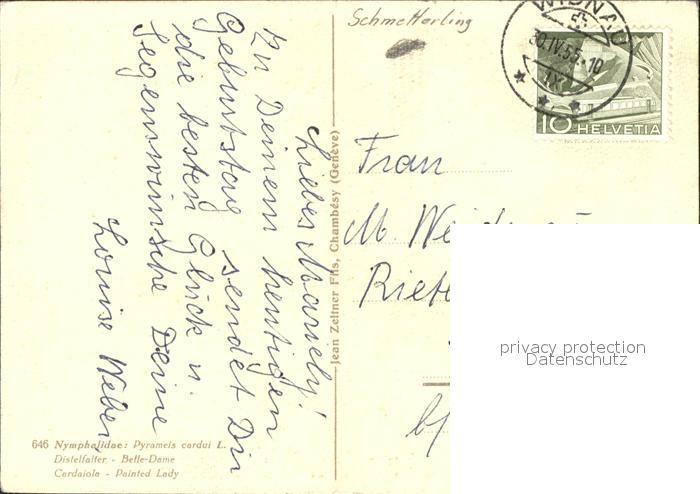 Schmetterling
WIDNAU
30.IV.55-10
10 HELVETIA
Liebes Marely!
Zu Deinem heutigen
Geburtstag sendet Dir
die besten Glück u.
Segenswünsche Deine
Louise Weber
Jean Zeltner Fils, Chambésy (Genève)
Frau
M.
privacy protection
Datenschutz
646 Nymphalidae: Pyrameis cardui L.
Distelfalter - Belle-Dame
Cardaiola - Painted Lady